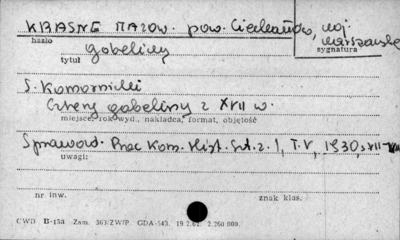 KRASNE MAZOW. pow. Ciechanów, woj.
warszawskie
hasło
sygnatura
gobeliny
tytuł
S. Komornicki
Cztery gobeliny z XVII w.
miejsce, rok wyd., nakładca, format, objętość
Sprawozd. Prac Kom. Hist. Szt. z. 1, T. V, 1930, s.
uwagi:
nr inw.
znak klas.
CWD B-153 Zam. 363/ZW/P. GDA-543. 19.2.62. 2.260 000.